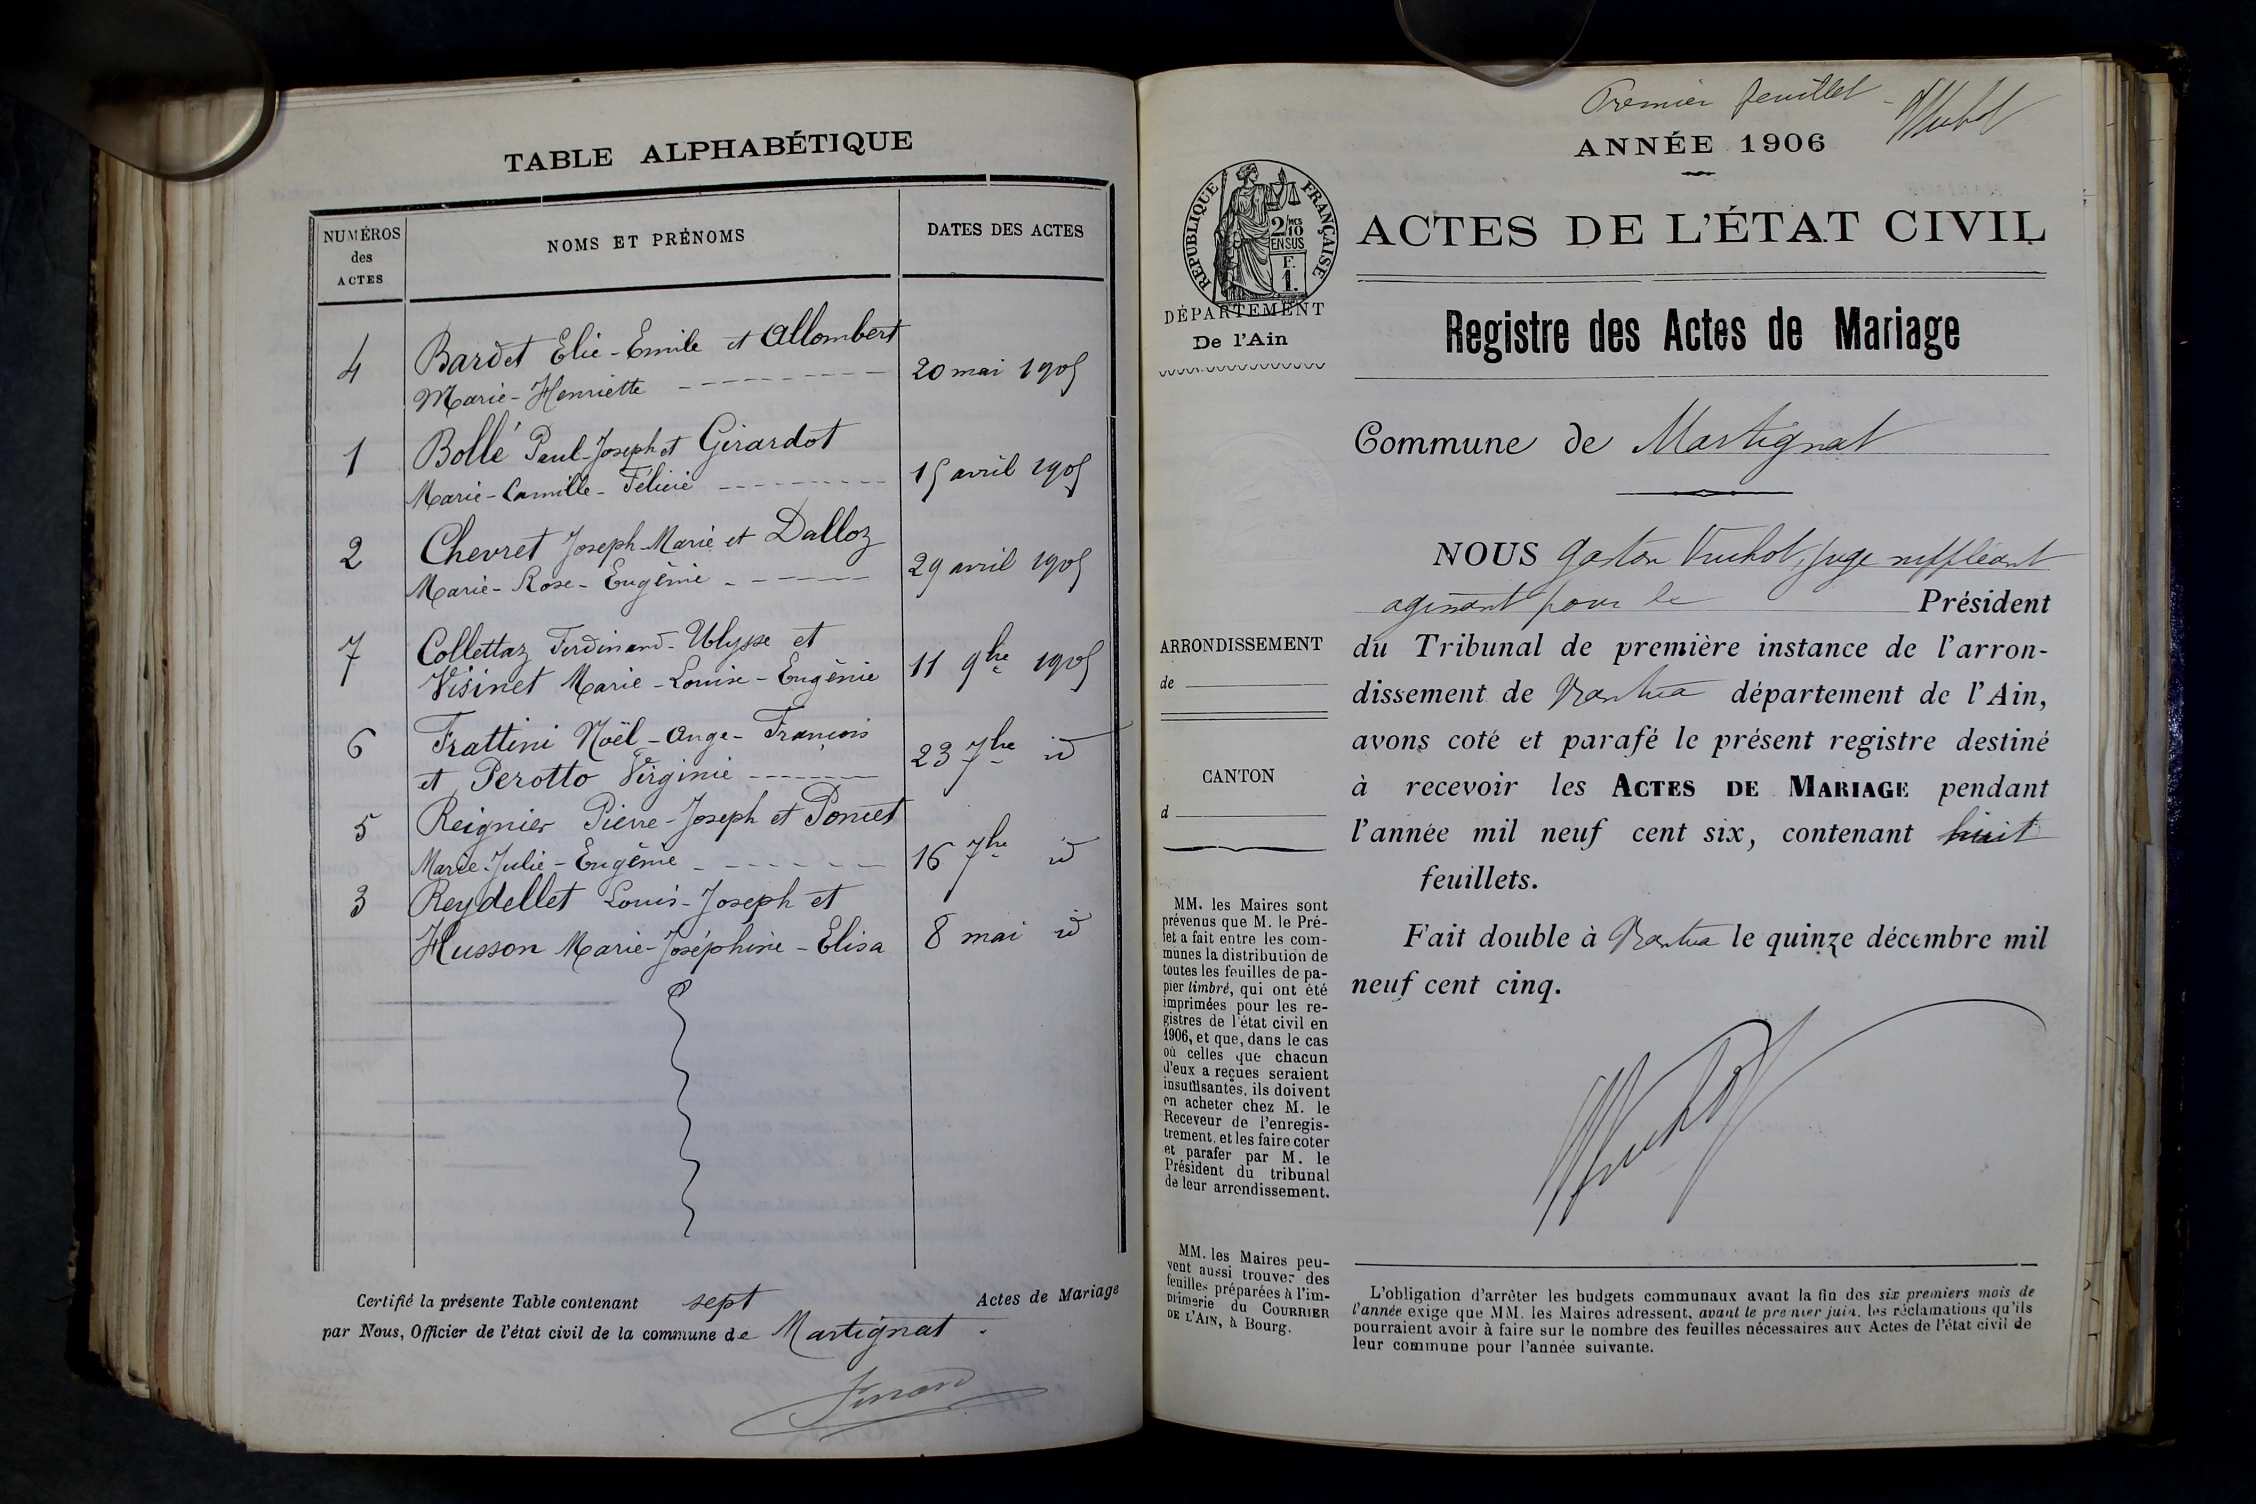 TABLE ALPHABÉTIQUE
NUMÉROS des ACTES
NOMS ET PRÉNOMS
DATES DES ACTES
4 Bardet Elie-Emile et Allombert
Marie-Henriette 20 mai 1905
1 Bollé Paul-Joseph et Girardot
Marie-Camille-Félicie 15 avril 1905
2 Chevret Joseph-Marie et Dalloz
Marie-Rose-Eugénie 29 avril 1905
7 Collettaz Ferdinand-Ulysse et
Visinet Marie-Louise-Eugénie 11 9bre 1905
6 Frattini Noël-Ange-François
et Perotto Virginie 23 7bre id
5 Reignier Pierre-Joseph et Poncet
Marie-Julie-Eugénie 16 7bre id
3 Reydellet Louis-Joseph et
Husson Marie-Joséphine-Elisa 8 mai id
Certifié la présente Table contenant sept Actes de Mariage
par Nous, Officier de l'état civil de la commune de Martignat.
Premier feuillet
ANNÉE 1906
RÉPUBLIQUE FRANÇAISE
2/10 EN SUS
F. 1.
ACTES DE L'ÉTAT CIVIL
DÉPARTEMENT
De l'Ain
Registre des Actes de Mariage
Commune de Martignat
NOUS Gaston Vuchot, juge suppléant
agissant pour le Président
du Tribunal de première instance de l'arron-
dissement de Nantua département de l'Ain,
avons coté et parafé le présent registre destiné
à recevoir les ACTES DE MARIAGE pendant
l'année mil neuf cent six, contenant huit
feuillets.
Fait double à Nantua le quinze décembre mil
neuf cent cinq.
ARRONDISSEMENT
de
CANTON
d
MM. les Maires sont
prévenus que M. le Pré-
fet a fait entre les com-
munes la distribution de
toutes les feuilles de pa-
pier timbré, qui ont été
imprimées pour les re-
gistres de l'état civil en
1906, et que, dans le cas
où celles que chacun
d'eux a reçues seraient
insuffisantes, ils doivent
en acheter chez M. le
Receveur de l'enregis-
trement, et les faire coter
et parafer par M. le
Président du tribunal
de leur arrondissement.
MM. les Maires peu-
vent aussi trouver des
feuilles préparées à l'im-
primerie du COURRIER
DE L'AIN, à Bourg.
L'obligation d'arrêter les budgets communaux avant la fin des six premiers mois de
l'année exige que MM. les Maires adressent, avant le premier juin, les réclamations qu'ils
pourraient avoir à faire sur le nombre des feuilles nécessaires aux Actes de l'état civil de
leur commune pour l'année suivante.